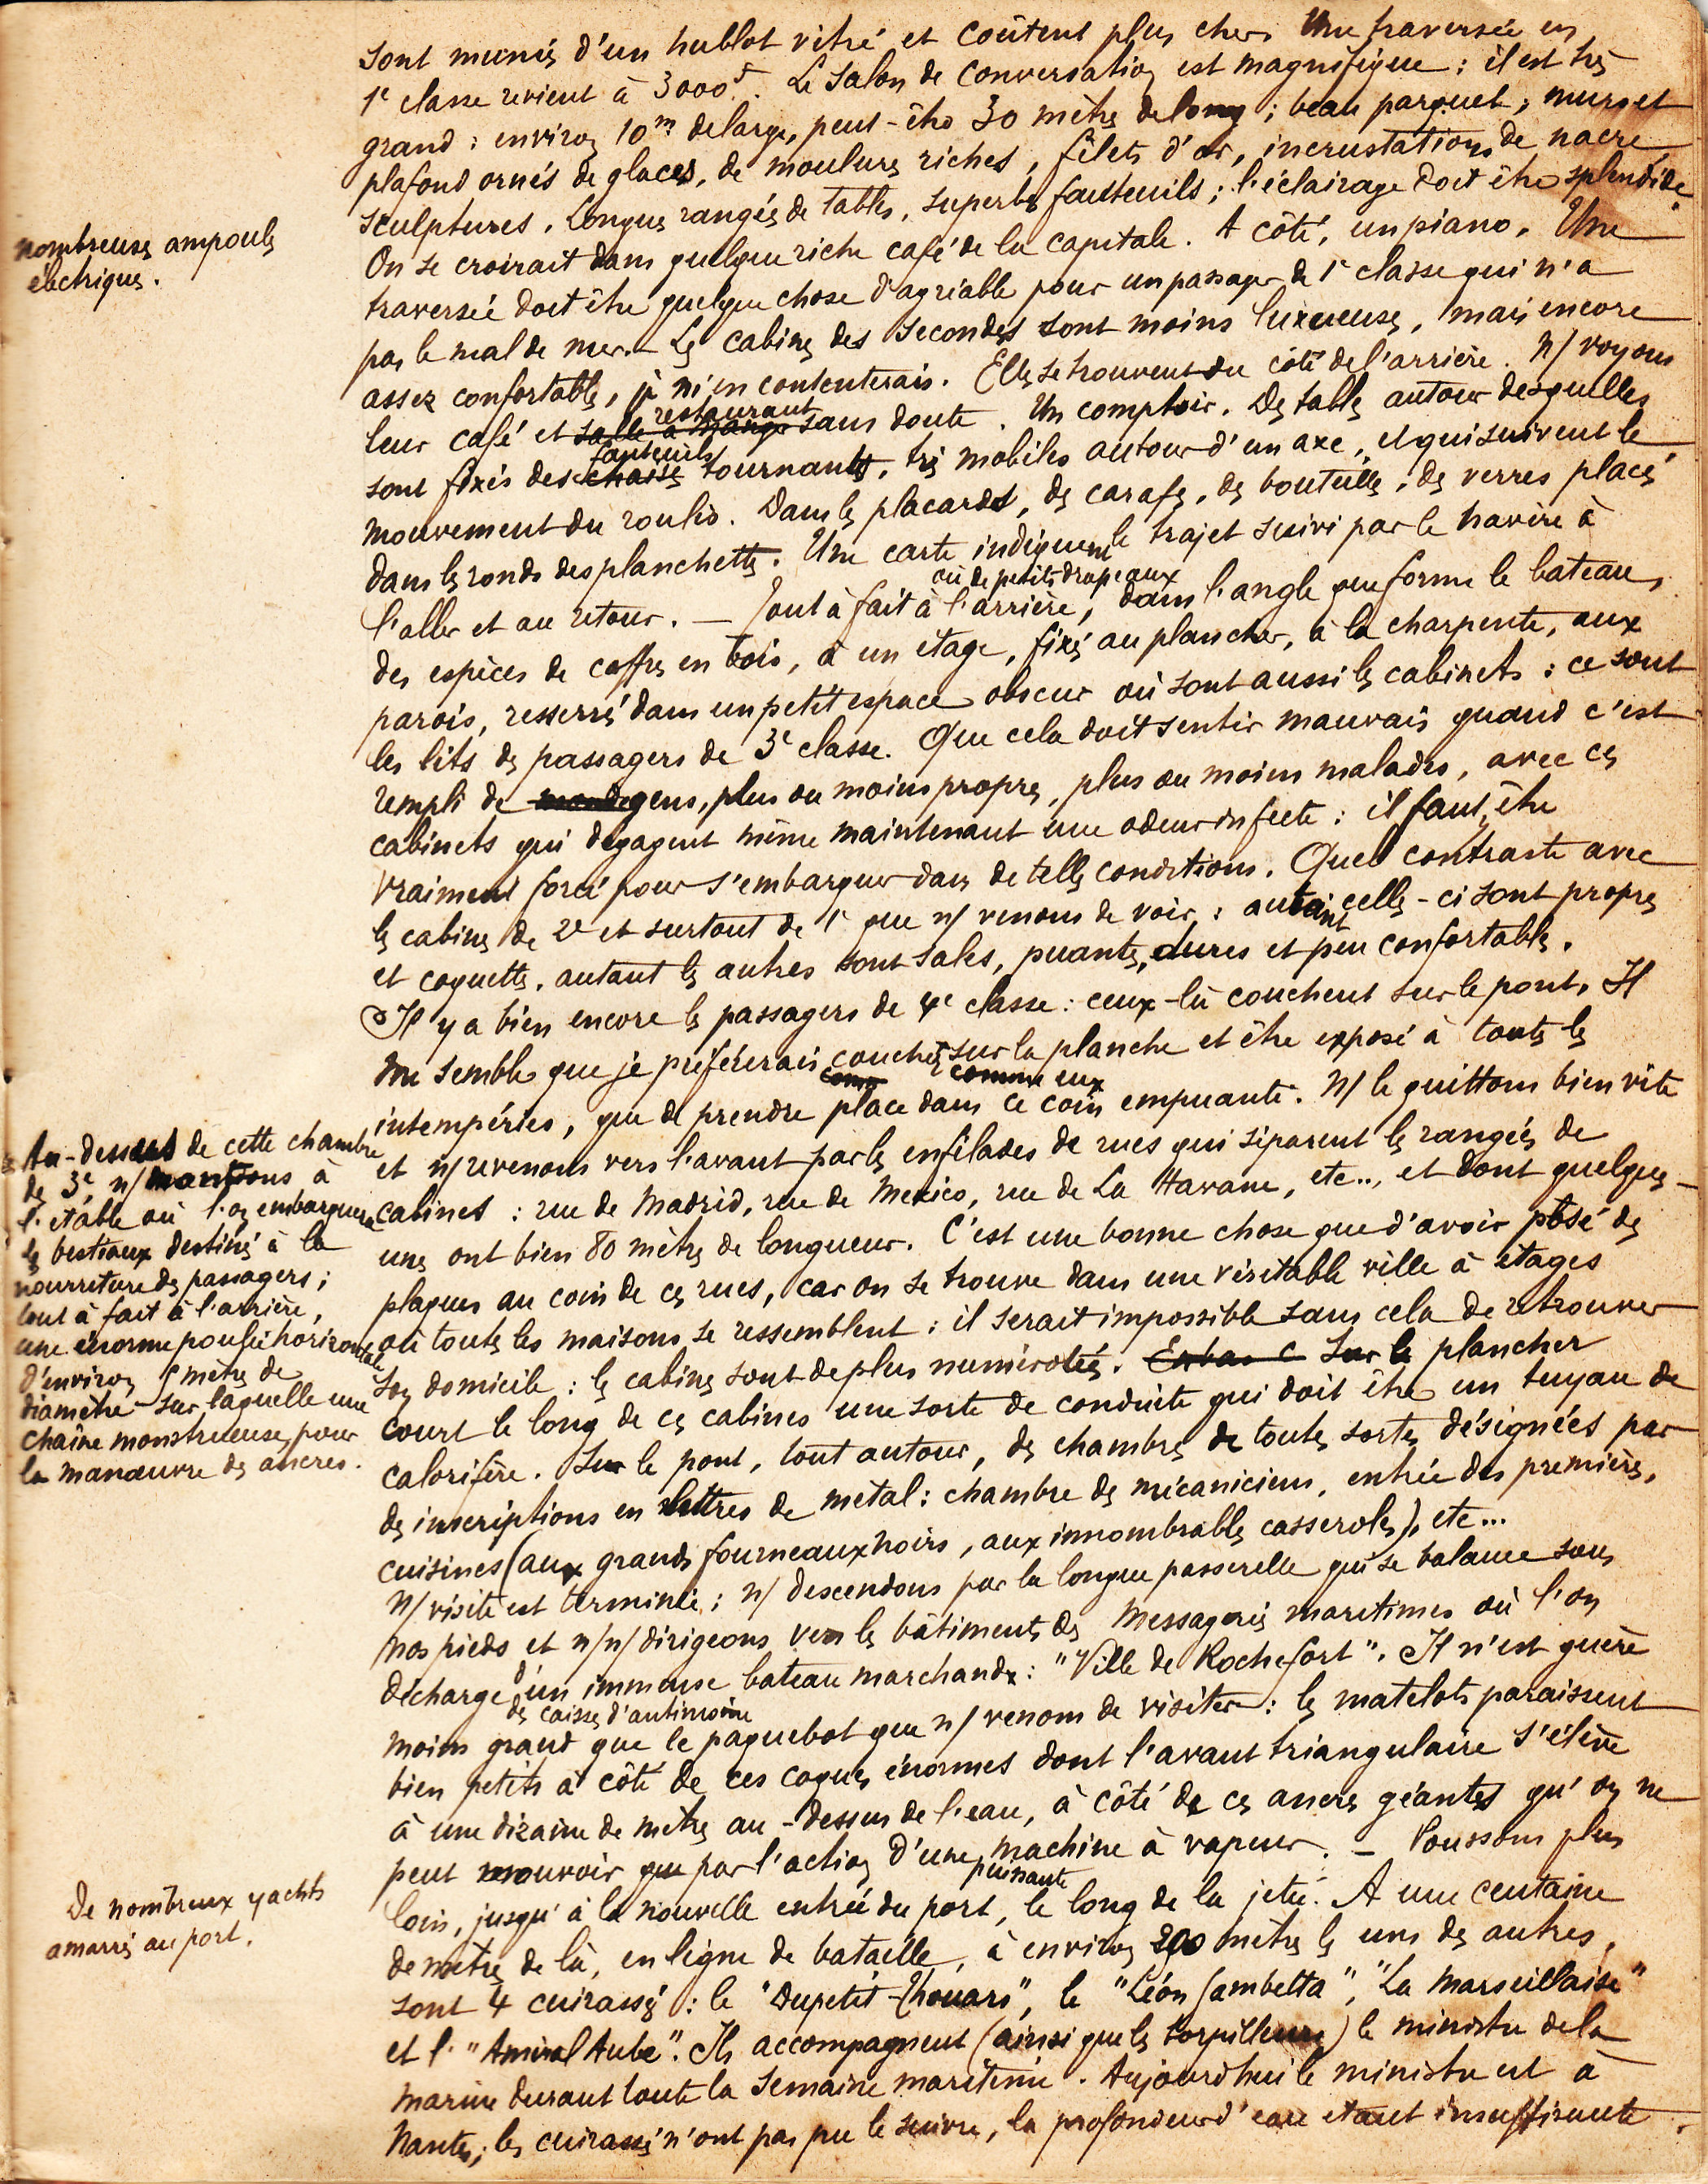 sont munies d'un hublot vitré et coûtent plus cher. Une traversée en
1e classe revient à 3000f. Le salon de conversation est magnifique : il est très
grand : environ 10m de large, peut-être 30 mètres de long ; beau parquet, murs et
plafond ornés de glaces, de moulures riches, filets d'or, incrustations de nacre
sculptures. Longues rangées de tables, superbes fauteuils ; l'éclairage doit être splendide.
nombreuses ampoules
électriques.
On se croirait dans quelque riche café de la capitale. A côté, un piano. Une
traversée doit être quelque chose d'agréable pour un passager de 1e classe qui n'a
pas le mal de mer. — Les cabines des secondes sont moins luxueuses, mais encore
assez confortables, je m'en contenterais. Elles se trouvent du côté de l'arrière. N/ voyons
leur café et salle à manger restaurant sans doute. Un comptoir. Des tables autour desquelles
sont fixés des chaises fauteuils tournants, très mobiles autour d'un axe, et qui suivent le
mouvement du roulis. Dans les placards, des carafes, des bouteilles, des verres placés
dans les ronds des planchettes. Une carte où de petits drapeaux indiquent le trajet suivi par le navire à
l'aller et au retour. — Tout à fait à l'arrière, dans l'angle que forme le bateau,
des espèces de coffres en bois, à un étage, fixés au plancher, à la charpente, aux
parois, resserrés dans un petit espace obscur où sont aussi les cabinets : ce sont
les lits des passagers de 3e classe. Que cela doit sentir mauvais quand c'est
rempli de monde gens, plus ou moins propres, plus ou moins malades, avec ces
cabinets qui dégagent même maintenant une odeur infecte : il faut être
vraiment forcé pour s'embarquer dans de telles conditions. Quel contraste avec
les cabines de 2e et surtout de 1e que n/ venons de voir : autant celles-ci sont propres
et coquettes, autant les autres sont sales, puantes, dures et peu confortables.
Il y a bien encore les passagers de 4e classe : ceux-là couchent sur le pont. Il
me semble que je préférerais coucher comme eux sur la planche et être exposé à toutes les
intempéries, que de prendre place dans ce coin empuanté. N/ le quittons bien vite
et n/ revenons vers l'avant par les enfilades de rues qui séparent les rangées de
cabines : rue de Madrid, rue de Mexico, rue de La Havane, etc.., et dont quelques-
unes ont bien 80 mètres de longueur. C'est une bonne chose que d'avoir posé des
plaques au coin de ces rues, car on se trouve dans une véritable ville à étages
où toutes les maisons se ressemblent : il serait impossible sans cela de retrouver
Au-dessus de cette chambre
de 3e, n/ montons à
l'étable où l'on embarquera
les bestiaux destinés à la
nourriture des passagers ;
tout à fait à l'arrière,
une énorme poulie horizontale
d'environ mètres de
diamètre sur laquelle une
chaîne monstrueuse, pour
la manœuvre des ancres.
son domicile : les cabines sont de plus numérotées. En bas c Sur le plancher
court le long de ces cabines une sorte de conduite qui doit être un tuyau de
calorifère. Sur le pont, tout autour, des chambres de toutes sortes désignées par
des inscriptions en lettres de métal : chambre des mécaniciens, entrée des premières,
cuisines (aux grands fourneaux noirs, aux innombrables casseroles), etc...
N/ visite est terminée ; n/ descendons par la longue passerelle qui se balance sous
nos pieds et n/ n/ dirigeons vers les bâtiments des Messageries maritimes où l'on
décharge des caisses d'antimoine d'un immense bateau marchand : "Ville de Rochefort". Il n'est guère
moins grand que le paquebot que n/ venons de visiter : les matelots paraissent
bien petits à côté de ces coques énormes dont l'avant triangulaire s'élève
à une dizaine de mètres au-dessus de l'eau, à côté de ces ancres géantes qu'on ne
peut mouvoir que par l'action d'une puissante machine à vapeur. — Poussons plus
loin, jusqu'à la nouvelle entrée du port, le long de la jetée. A une centaine
De nombreux yachts
amarrés au port.
de mètres de là, en ligne de bataille, à environ 200 mètres les uns des autres,
sont 4 cuirassés : le "Dupetit-Thouars", le "Léon Gambetta", "La Marseillaise"
et l' "Amiral Aube". Ils accompagnent (ainsi que les torpilleurs) le ministre de la
marine durant toute la semaine maritime. Aujourd'hui le ministre est à
Nantes ; les cuirassés n'ont pas pu le suivre, la profondeur d'eau étant insuffisante.